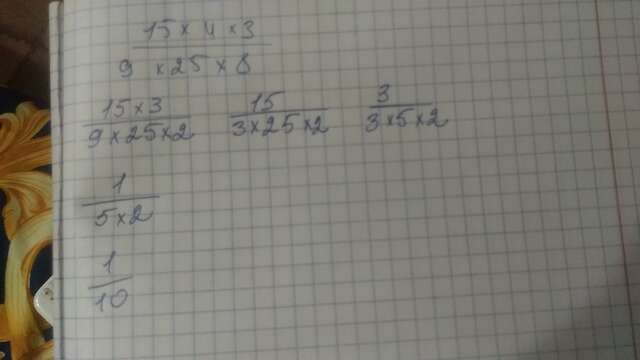 15 × 4 × 3
9 × 25 × 8
15 × 3   15   3
9 × 25 × 2   3 × 25 × 2   3 × 5 × 2
1
5 × 2
1
10